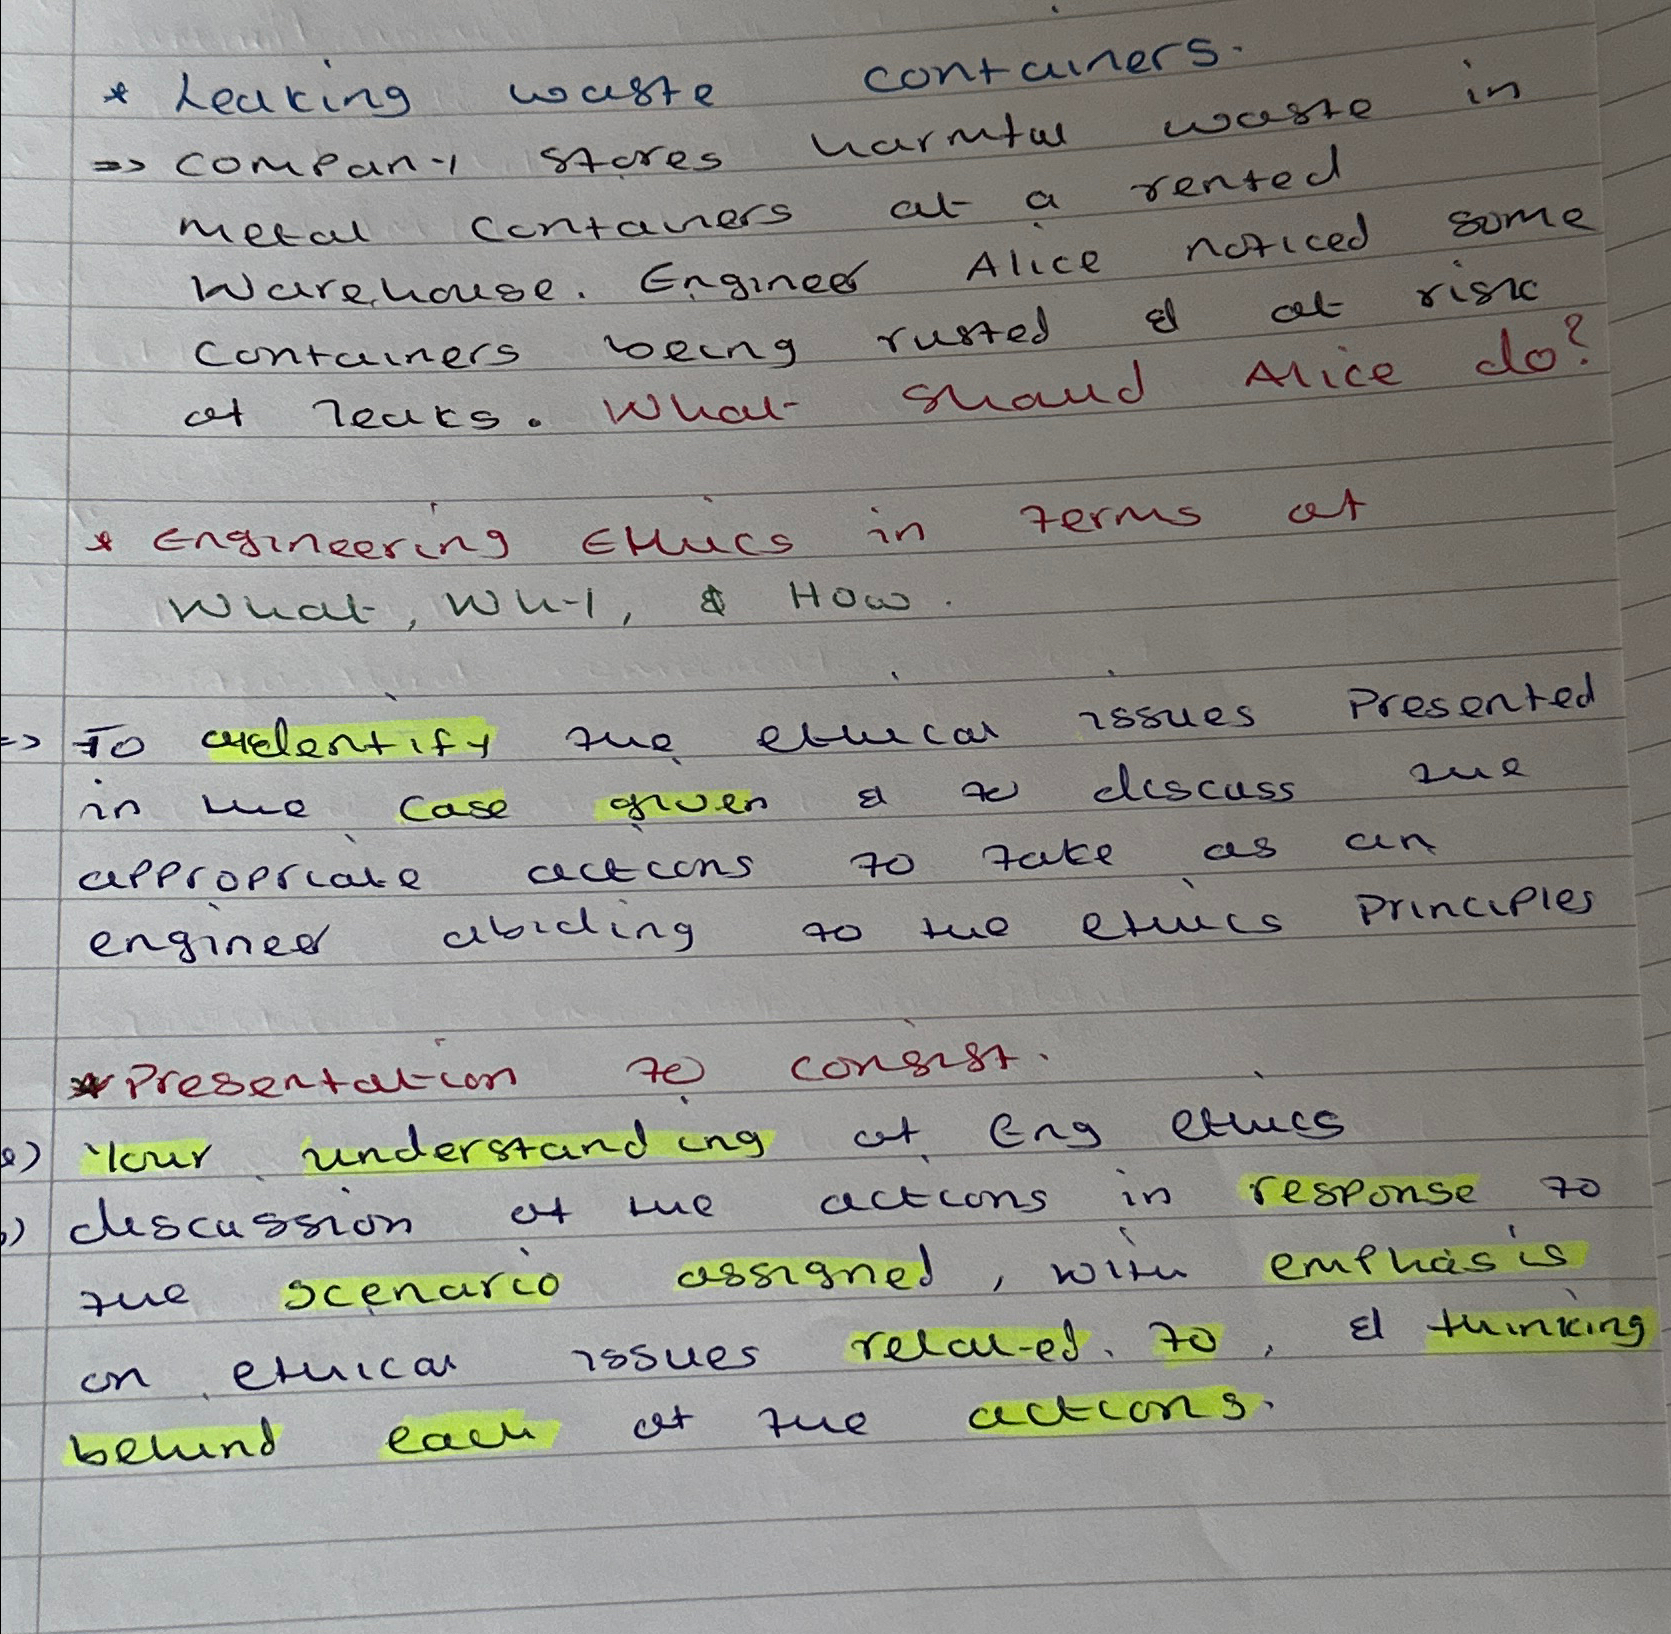 * Leaking waste containers.
=> Company stores harmful waste in
metal containers at a rented
Warehouse. Engineer Alice noticed some
containers being rusted & at risk
of leaks. What should Alice do?
* Engineering Ethics in terms of
What, Why, & How.
=> To identify the ethical issues presented
in the case given & to discuss the
appropriate actions to take as an
engineer abiding to the ethics principles
* Presentation to consist.
a) Your understanding of Eng ethics
b) discussion of the actions in response to
the scenario assigned, with emphasis
on ethical issues related to, & thinking
behind each of the actions.